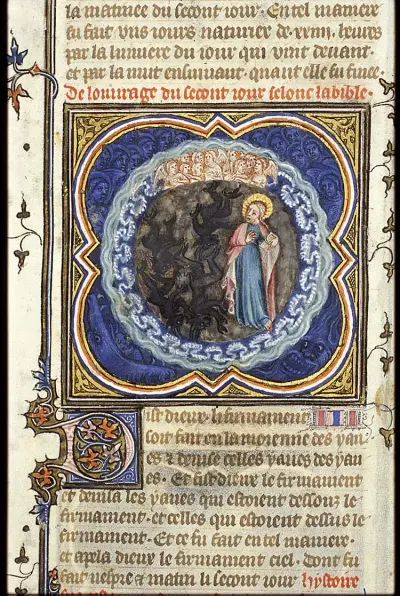 la matinee du secont iour. En tel maniere
fu fait vns iours naturier de .xxiiij. heures
par la lumiere du iour qui vint deuant.
et par la nuit ensuiuant. quant elle fu finee.
De louurage du secont iour selonc la bible.
Dist dieux li firmamens
soit fait en la moienne des yau
es & deuise celles yaues des yau
es. Et fist dieux le firmament
et deuisa les yaues qui estoient dessouz le
firmament. et celles qui estoient dessus le
firmament. Et ce fu fait en tel maniere.
et apela dieux le firmament ciel. Dont fu
fait uespre & matin li secont iour hystoire